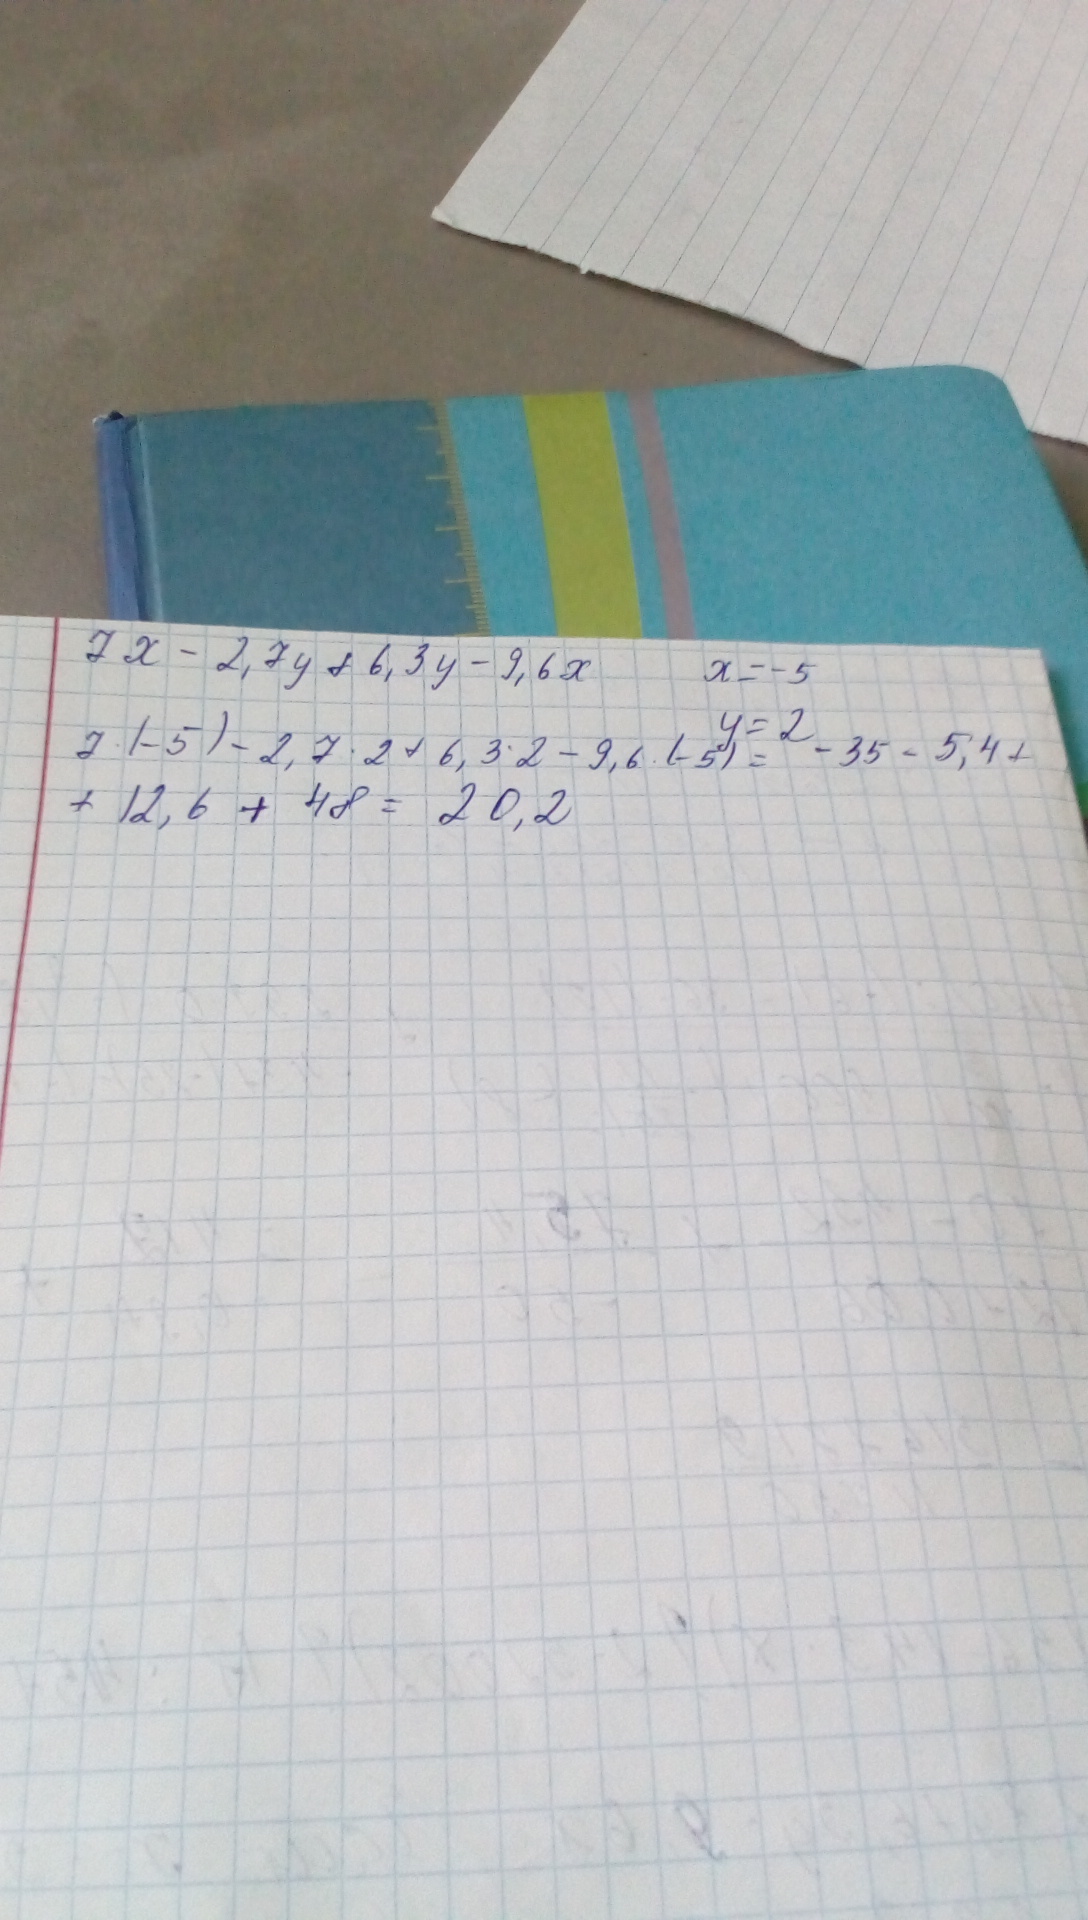 7x - 2,7y + 6,3y - 9,6x x = -5
y = 2
7·(-5) - 2,7·2 + 6,3·2 - 9,6·(-5) = -35 - 5,4 +
+ 12,6 + 48 = 20,2